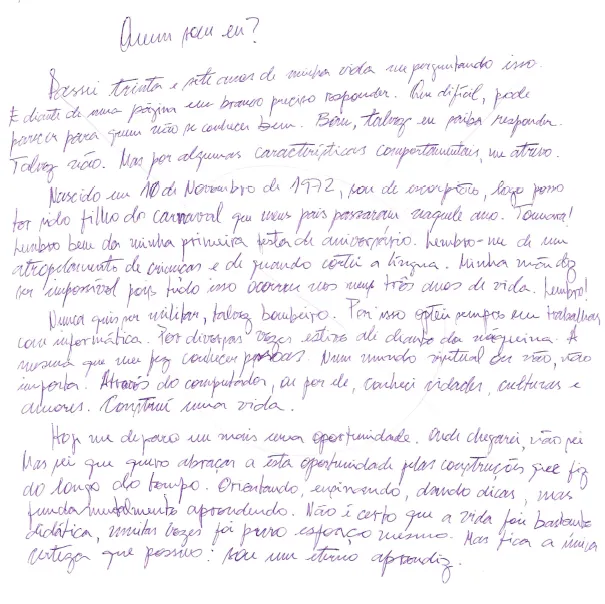 Quem sou eu?
Passei trinta e sete anos de minha vida me perguntando isso.
E diante de uma página em branco preciso responder. Que difícil, pode
parecer para quem não se conhece bem. Bom, talvez eu saiba responder.
Talvez não. Mas por algumas características comportamentais, me atrevo.
Nascido em 10 de Novembro de 1972, sou de escorpião, logo posso
ter sido filho do carnaval que meus pais passaram naquele ano. Tomara!
Lembro bem da minha primeira festa de aniversário. Lembro-me de um
atropelamento de crianças e de quando cortei a língua. Minha mãe diz
ser impossível pois tudo isso ocorreu nos meus três anos de vida. Lembro!
Nunca quis ser militar, talvez bombeiro. Por isso optei sempre em trabalhar
com informática. Por diversas vezes estive ali diante da máquina. A
mesma que me fez conhecer pessoas. Num mundo virtual ou não, não
importa. Através do computador, ou por ele, conheci cidades, culturas e
amores. Construí uma vida.
Hoje me deparo em mais uma oportunidade. Onde chegarei, não sei
Mas sei que quero abraçar a esta oportunidade pelas construções que fiz
ao longo do tempo. Orientando, ensinando, dando dicas, mas
fundamentalmente aprendendo. Não é certo que a vida foi bastante
didática, muitas vezes foi puro esforço mesmo. Mas fica a única
certeza que possuo: sou um eterno aprendiz.